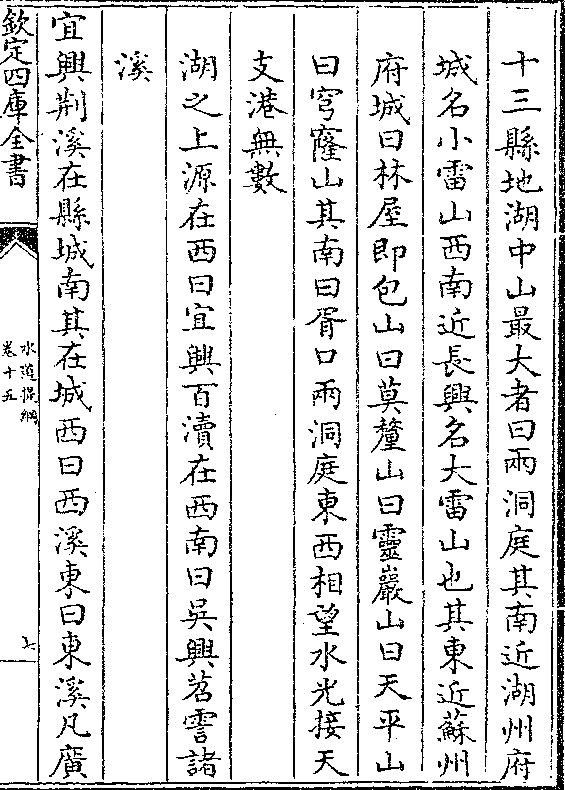 十三縣地湖中山最大者曰兩洞庭其南近湖州府
城名小雷山西南近長興名大雷山也其東近蘇州
府城曰林屋即包山曰莫釐山曰靈巖山曰天平山
曰穹窿山其南曰胥口兩洞庭東西相望水光接天
支港無數
湖之上源在西曰宜興百瀆在西南曰吳興苕霅諸
溪
宜興荆溪在縣城南其在城西曰西溪東曰東溪凡廣
欽定四庫全書
水道提綱
卷十五
七